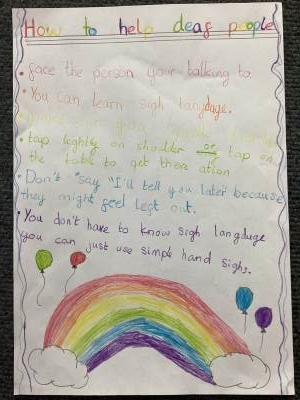 How to help deaf people
• face the person your talking to.
• You can learn sigh langduge.
• tap lightly on sholder or tap on
the table to get there ation
• Don't say "I'll tell you later because
they might feel left out.
• You don't have to know sigh langduge
you can just use simple hand sighs.